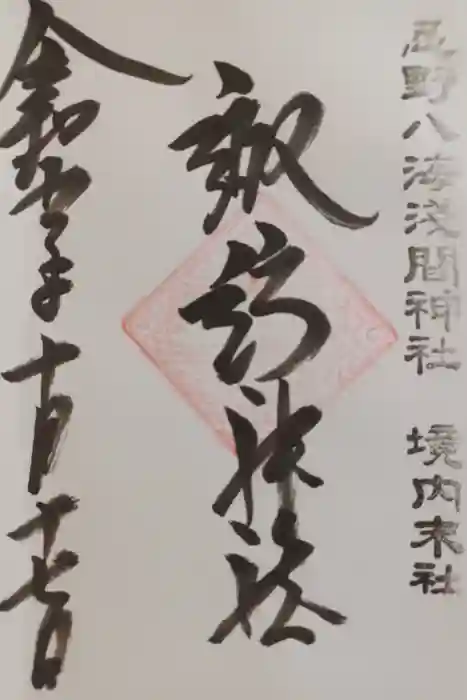 忍野八海浅間神社 境内末社
神社
令和年十月十七日